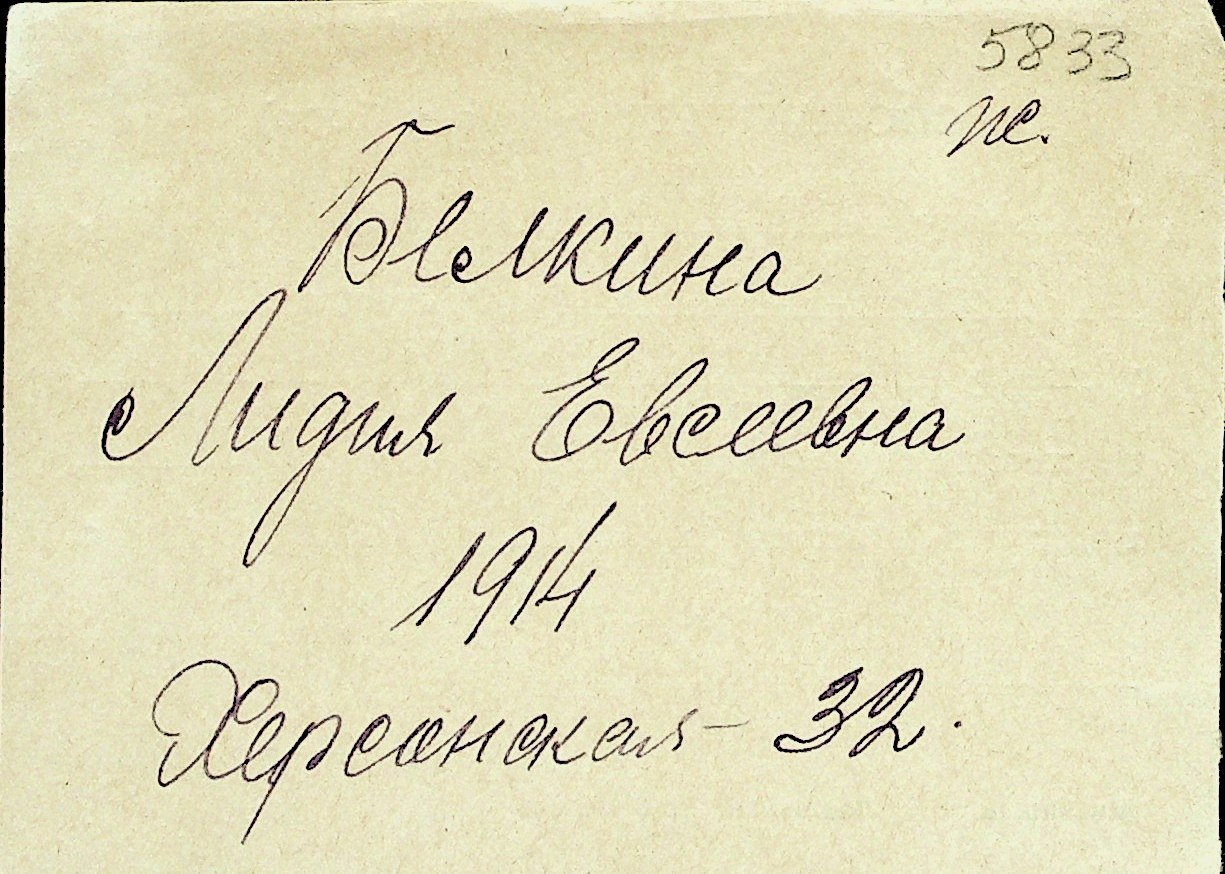 5833
ж.
Белкина
Лидия Евсеевна
1914
Херсонская 32.